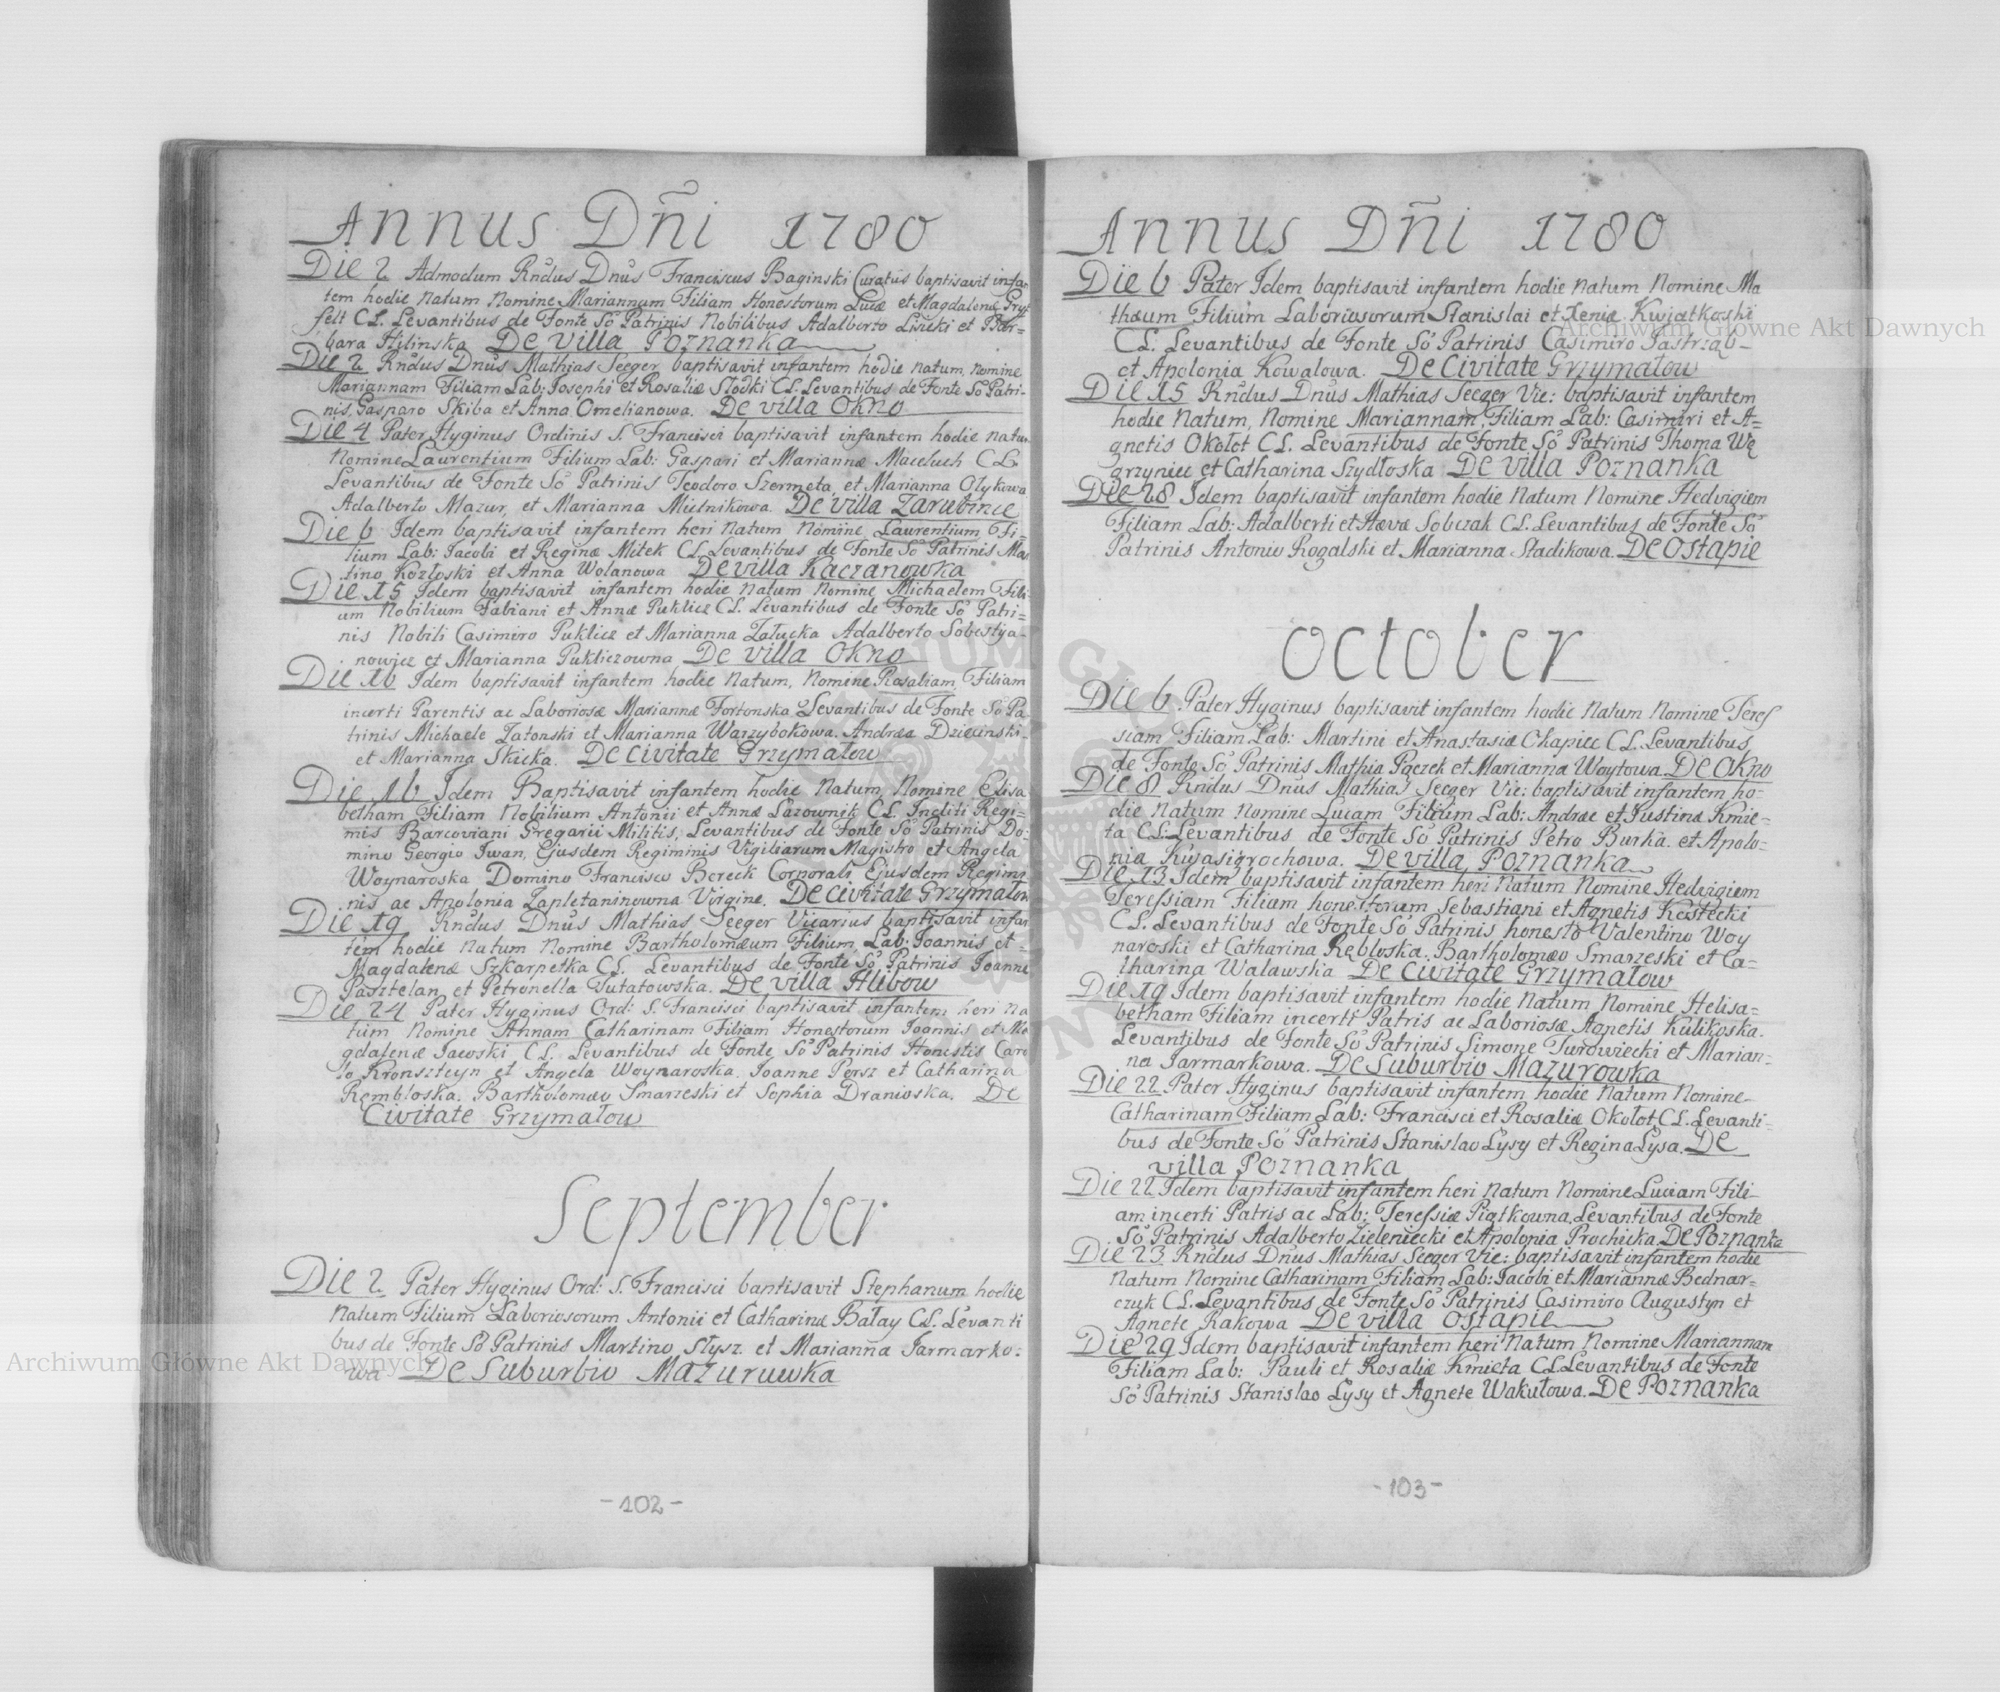 Annus Dn̄i 1780
Die 2 Admodum Rndus Dnus Franciscus Baginski Curatus baptisavit infan
tem hodie natum nomine Mariannam Filiam Honestorum Lucæ et Magdalenæ Gryf
felt CL. Levantibus de Fonte So Patrinis Nobilibus Adalberto Lisicki et Bar-
bara Hilinska De villa Poznanka
Die 2 Rndus Dnus Mathias Seeger baptisavit infantem hodie natum nomine
Mariannam Filiam Lab: Josephi et Rosaliæ Slodki CL. Levantibus de Fonte So Patri-
nis, Gasparo Skiba et Anna Omelianowa. De villa Okno
Die 4 Pater Hyginus Ordinis S. Francisci baptisavit infantem hodie natum
nomine Laurentium Filium Lab: Gaspari et Mariannæ Maceluch CL.
Levantibus de Fonte So Patrinis Teodoro Szermeta, et Marianna Olykowa
Adalberto Mazur, et Marianna Mielnikowa. De villa Zarubince
Die 6 Idem baptisavit infantem heri natum nomine Laurentium Fi=
lium Lab: Jacobi et Reginæ Mitek CL. Levantibus de Fonte So Patrinis Mar
tino Kozłoski et Anna Wolanowa De villa Kaczanowka
Die 15 Idem baptisavit infantem hodie natum nomine Michaelem Fili
um Nobilium Fabiani et Annæ Puklicz CL. Levantibus de Fonte So Patri=
nis Nobili Casimiro Puklicz et Marianna Załucka Adalberto Sobestya-
nowicz et Marianna Pukliczowna De villa Okno
Die 16 Idem baptisavit infantem hodie natum, nomine Rosaliam, Filiam
incerti Parentis ac Laboriosæ Mariannæ Fortonska Levantibus de Fonte So Pa
trinis Michaele Zatonski et Marianna Warzybokowa. Andrea Dziewnski
et Marianna Skicka. De Civitate Grzymałow
Die 16 Idem Baptisavit infantem hodie natum nomine Elisa
betham Filiam Nobilium Antonii et Annæ Lazownik CL. Incliti Regi=
mis Barcoviani Gregarii Militis, Levantibus de Fonte So Patrinis Do=
mino Georgio Iwan, Ejusdem Regiminis Vigiliarum Magistro et Angela
Woynaroska Domino Francisco Bereck Corporali Ejusdem Regimi
nis ac Apolonia Zapletaninowna Virgine. De Civitate Grzymałow
Die 19 Rndus Dnus Mathias Seeger Vicarius baptisavit infan
tem hodie natum nomine Bartholomæum Filium Lab: Joannis et =
Magdalenæ Szkarpetka CL. Levantibus de Fonte So Patrinis Joanne
Pasztelan, et Petronella Tutatowska. De villa Hlibow
Die 24 Pater Hyginus Ord: S. Francisci baptisavit infantem heri na
tum nomine Annam Catharinam Filiam Honestorum Joannis et Ma
gdalenæ Jaewski CL. Levantibus de Fonte So Patrinis Honestis Caro
lo Kronszteyn et Angela Woynaroska. Joanne Persz et Catharina
Rembloska. Bartholomæo Smarzeski et Sophia Dranioska. De
Civitate Grzymałow
September
Die 2 Pater Hyginus Ord: S. Francisci baptisavit Stephanum hodie
natum Filium Laboriosorum Antonii et Catharinæ Bałay CL. Levanti
bus de Fonte So Patrinis Martino Słysz et Marianna Jarmarko:
wa De Suburbio Mazuruwka
-102-
Annus Dn̄i 1780
Die 6 Pater Idem baptisavit infantem hodie natum nomine Ma
thæum Filium Laboriosorum Stanislai et Xeniæ Kwjatkoski
CL. Levantibus de Fonte So Patrinis Casimiro Jastrząb-
et Apolonia Kowalowa. De Civitate Grzymałow
Die 15 Rndus Dnus Mathias Seeger Vic: baptisavit infantem
hodie natum, nomine Mariannam, Filiam Lab: Casimiri et A=
gnetis Okołot CL. Levantibus de Fonte So Patrinis Thoma Wę
grzyniec et Catharina Szydłoska De villa Poznanka
Die 28 Idem baptisavit infantem hodie natum nomine Hedvigiem
Filiam Lab: Adalberti et Hævæ Sobczak CL. Levantibus de Fonte So
Patrinis Antonio Rogalski et Marianna Stadikowa. De Ostapie
October
Die 6 Pater Hyginus baptisavit infantem hodie natum nomine Teres
siam Filiam Lab: Martini et Anastasiæ Chapiec CL. Levantibus
de Fonte So Patrinis Mathia Pączek et Marianna Woytowa. De Okno
Die 8 Rndus Dnus Mathias Seeger Vic: baptisavit infantem ho=
die natum nomine Lucam Filium Lab: Andreæ et Justinæ Kmie-
ta CL. Levantibus de Fonte So Patrinis Petro Burka. et Apolo=
nia Kwasigrochowa. De villa Poznanka
Die 13 Idem baptisavit infantem heri natum nomine Hedvigiem
Teressiam Filiam honestorum Sebastiani et Agnetis Kostecki
CL. Levantibus de Fonte So Patrinis honesto Valentino Woy
naroski et Catharina Rębloska. Bartholomæo Smarzeski et Ca=
tharina Walawska De Civitate Grzymałow
Die 19 Idem baptisavit infantem hodie natum nomine Helisa=
betham Filiam incerti Patris ac Laboriosæ Agnetis Kulikoska.
Levantibus de Fonte So Patrinis Simone Turowiecki et Marian=
na Jarmarkowa. De Suburbio Mazurowka
Die 22 Pater Hyginus baptisavit infantem hodie natum nomine
Catharinam Filiam Lab: Francisci et Rosaliæ Okołot, CL. Levanti=
bus de Fonte So Patrinis Stanislao Lysy et Regina Lysa. De
villa Poznanka
Die 22 Idem baptisavit infantem heri natum nomine Luciam Fili-
am incerti Patris ac Lab: Teressiæ Piątkowna, Levantibus de Fonte
So Patrinis Adalberto Zieleniecki et Apolonia Prochicka. De Poznanka
Die 23 Rndus Dnus Mathias Seeger Vic: baptisavit infantem hodie
natum nomine Catharinam Filiam Lab: Jacobi et Mariannæ Bednar=
czuk CL. Levantibus de Fonte So Patrinis Casimiro Augustyn et
Agnete Rakowa De villa Ostapie
Die 29 Idem baptisavit infantem heri natum nomine Mariannam
Filiam Lab: Pauli et Rosaliæ Kmieta CL. Levantibus de Fonte
So Patrinis Stanislao Lysy et Agnete Wakułowa. De Poznanka
-103-
Archiwum Główne Akt Dawnych
Archiwum Główne Akt Dawnych